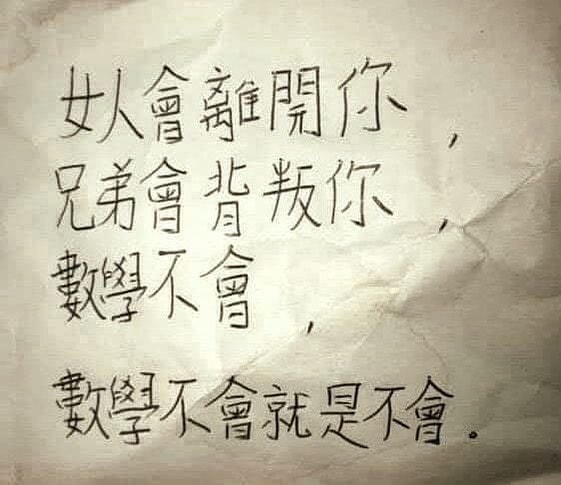 女人會離開你，
兄弟會背叛你，
數學不會，
數學不會就是不會。